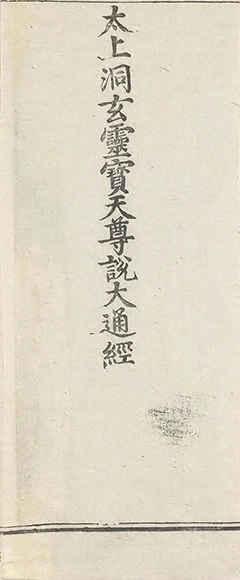 太上洞玄靈寶天尊說大通經